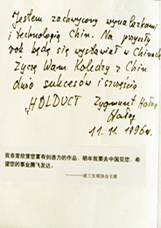 Jestem zachwycony wynalazkami
i technologią Chin. Na przyszły
rok będę się wystawiał w Chinach
Życzę Wam Koledzy z Chin
dużo sukcesów i szczęścia
HOLDUCT Zygmunt
11.11.1996r.
我非常欣赏您富有创造力的作品，明年我要去中国见您，希
望您的事业腾飞发达。
——波兰发明协会主席